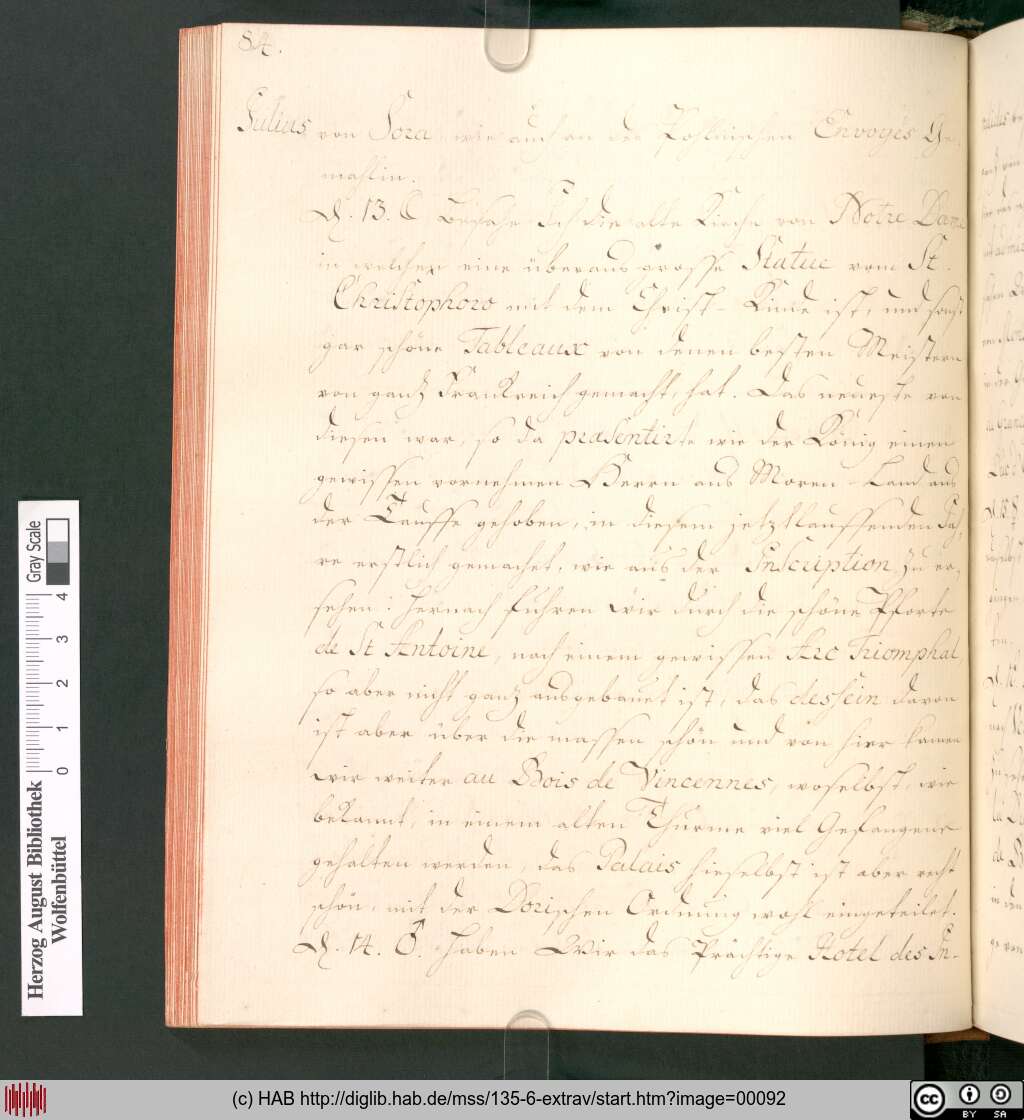 84.
Julius von Sora wie auch an des Pohlnischen Envoyés Ge-
mahlin.
D. 13. ☾ besahe Ich die alte Kirche von Notre Dame
in welcher eine überaus grosse Statue vom St.
Christophoro mit dem Christ-Kinde ist, und sonst
gar schöne Tableaux von denen besten Meistern
von gantz Franckreich gemacht, hat. Das neueste von
diesen war, so da præsentirte wie der König einen
gewissen vornehmen Herrn aus Moren-Land aus
der Tauffe gehoben, in diesem jetztlauffenden Jah-
re erstlich gemachet, wie aus der Inscription zu er-
sehen: Hernach fuhren wir durch die schöne Pforte
de St Antoine, nach einem gewissen Arc Triomphal,
so aber nicht gantz ausgebauet ist, das dessein davon
ist aber über die massen schön und von hier kamen
wir weiter au Bois de Vincennes, woselbst, wie
bekannt, in einem alten Thurme viel Gefangene
gehalten werden, das Palais hieselbst ist aber recht
schön, mit der Dorischen Ordnung wohl eingeteilet.
D. 14. ♂. Haben Wir das Prächtige Hotel des In-
Herzog August Bibliothek
Wolfenbüttel
Gray Scale
0 1 2 3 4
(c) HAB http://diglib.hab.de/mss/135-6-extrav/start.htm?image=00092
cc BY SA